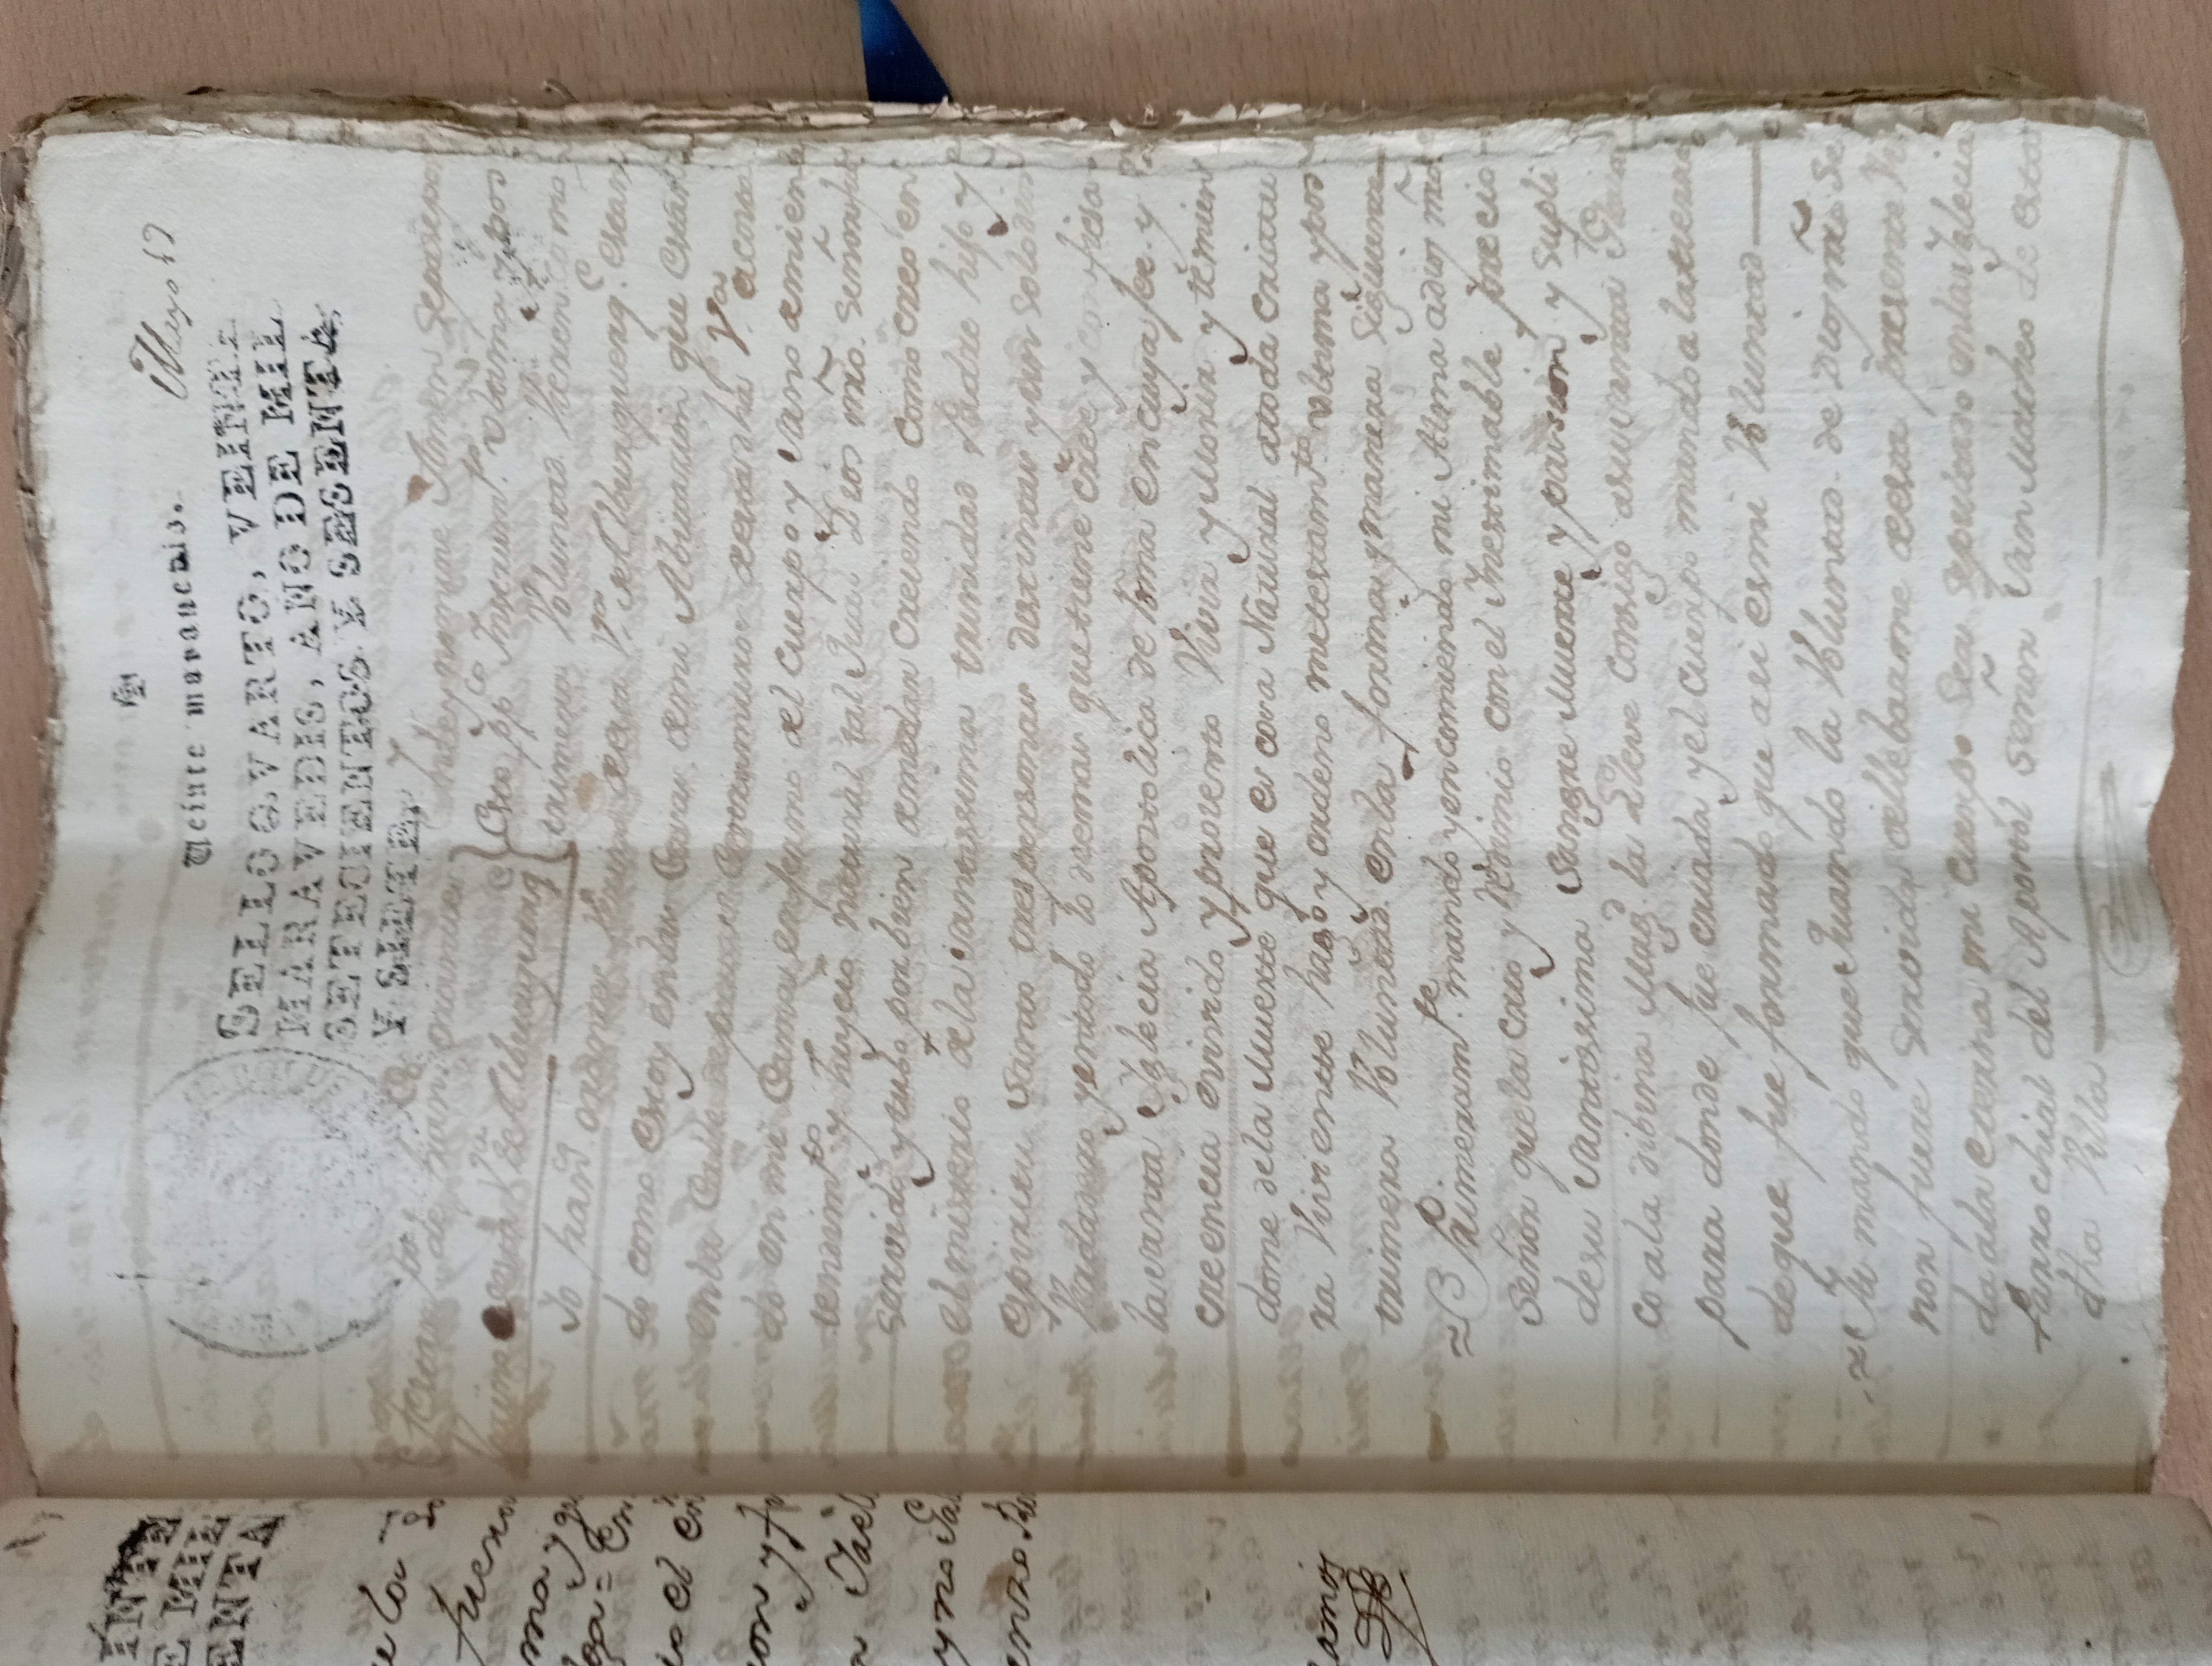 Veinte maravedis.
Mayo 13
SELLO QVARTO, VEINTE
MARAVEDIS, AÑO DE MIL
SETECIENTOS Y SESENTA
Y SIETE.
Testamto de Franco orantes
Vezino desta Va de Alburquerqe
Yndey nomine Amen Sepasepor
Esto ppco Instrumto vltima y pos
trimera Voluntad Vieren como
Yo Franco orantes Vecino desta Va de Alburquerqe estan
do como estoy en las Casas de mi Abitazion que estan
en la Calle de extramuros desta dha Va acosta
do en mi Cama enfermo del Cuerpo y Sano de mi en
tendimto y Juycio natural tal qual Dios nro. Señor fue
servido y tubo por bien de medar Creiendo como creo en
el misterio de la santissima trinidad Padre hijo y
espiritu Santo tres personas distintas y un solo dios
Verdadero y entodo lo demas que tiene cree y confiesa
la santa Iglecia Apostolica de Roma en cuya fee y
creencia e vivido y protesto Vivir y Morir y temien
dome dela Muerte que es cosa Natural atoda criatu
ra Vivientte hago y ordeno mi testamto vltima y pos
trimera Voluntad en la forma y manera Siguiente
Primeramte mando y encomiendo mi Alma a dios nro.
Señor que la crio y Redimio con el Inestimable precio
de su santissima Sangre Muerte y pasion y supli
co a la dibina Magd la Lleve Consigo a su santta Gloria
para donde fue criada y el cuerpo mando a la tierra
de que fue formado que asi es mi Voluntad
Itt mando que quando la Voluntad de Dios nro Se
nor fuere Servida de llebarme de esta presente Vi
da a la eterna mi cuerpo Sea Sepultado en la Iglecia
Parrochial del Apostol Señor San Matheo de esta
dha Villa